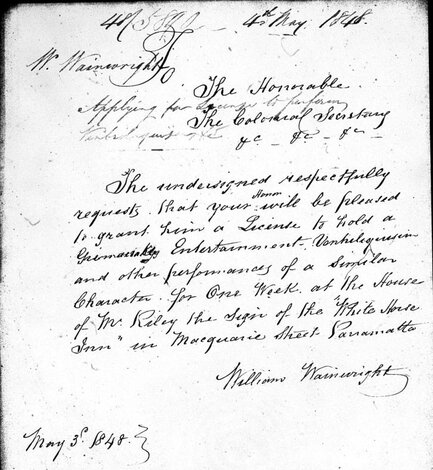 48/5892 4th May 1848.
W. Wainwright
To
The Honorable
Applying for License to perform
The Colonial Secretary
&c - &c - &c -
The undersigned respectfully
requests that your Honor will be pleased
to grant him a License to hold a
Entertainment. Ventriloquism
and other performances of a Similar
Character for One Week at the House
of Mr Riley the Sign of the "White Horse
Inn" in Macquarie Street Parramatta
William Wainwright
May 3d. 1848.